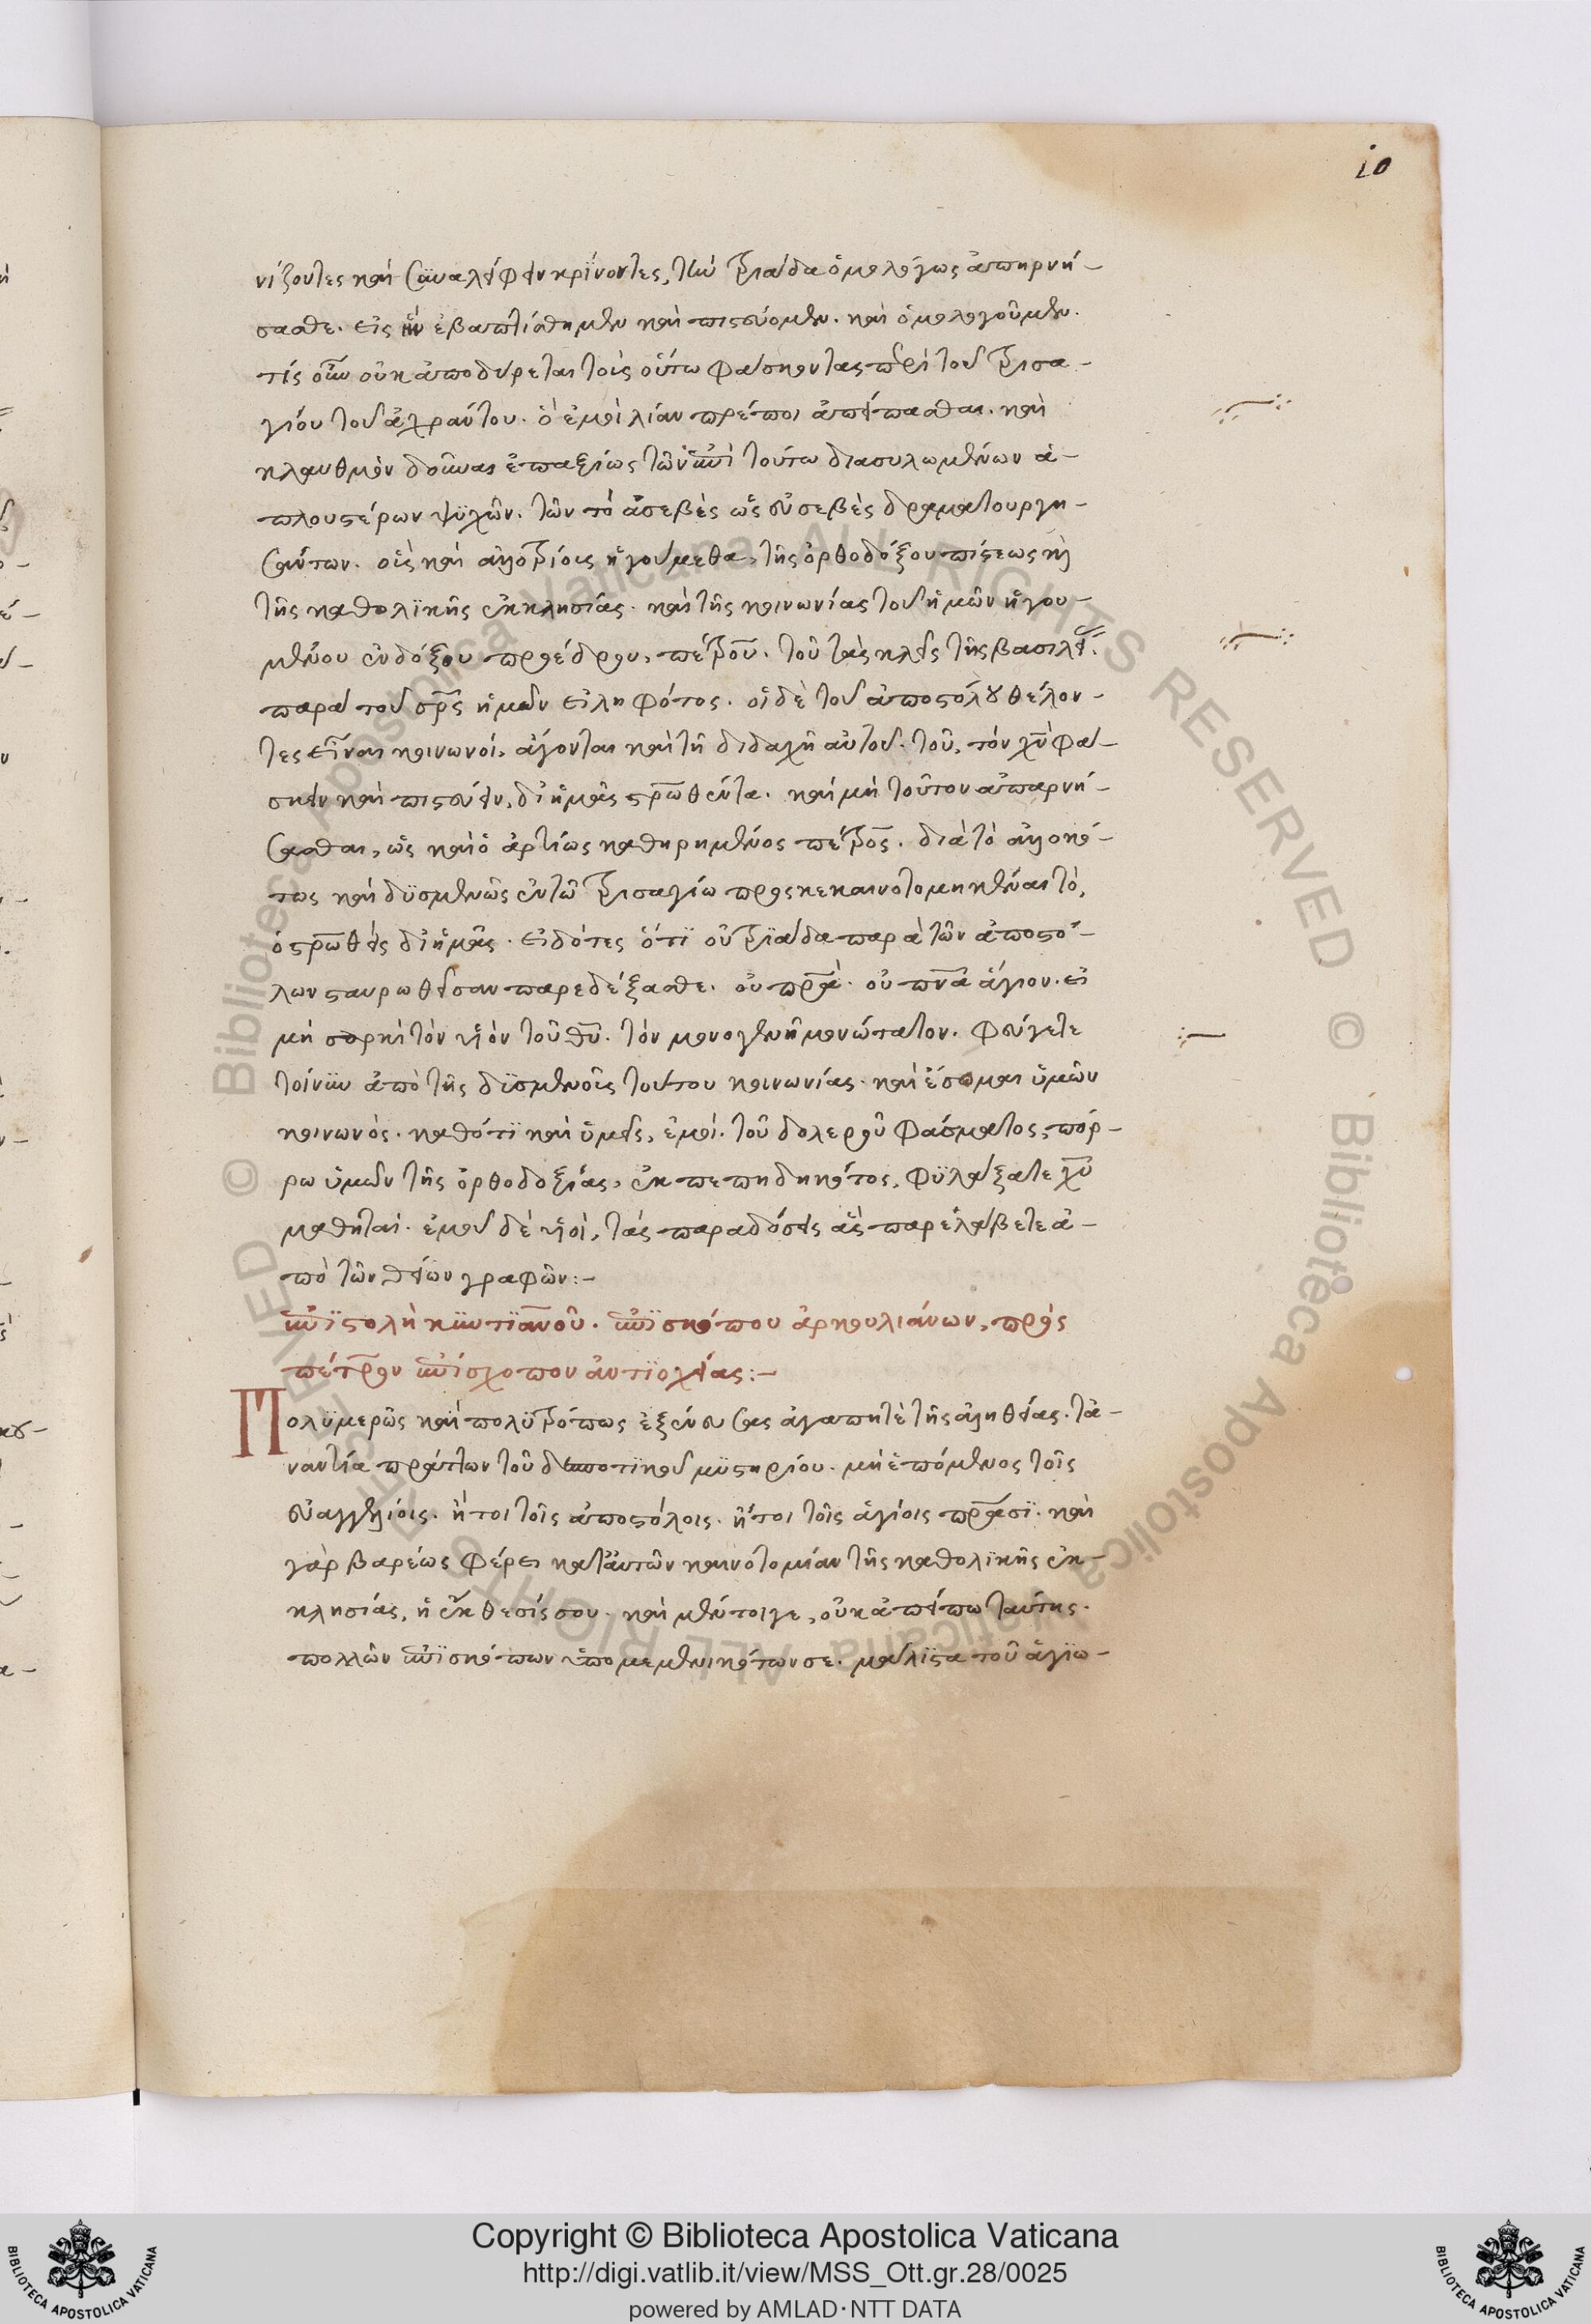 10
νίζοντες καὶ συναλείφειν κρίνοντες, τὴν τριάδα ὁμολόγως ἀπηρνή-
σασθε. εἰς ἣν ἐβαπτίσθημεν καὶ πιστεύομεν. καὶ ὁμολογοῦμεν.
τίς οὖν οὐκ ἀποδύρεται τοὺς οὕτω φάσκοντας περὶ τοῦ τρισα-
γίου τοῦ ἀχράντου. πρέποι καὶ
κλαυθμὸν δοῦναι ἐπαξίως τῶν ἐπὶ τούτω διασυλωμένων ἁ-
πλουστέρων ψυχῶν. τῶν τὸ ἀσεβὲς ὡς εὐσεβὲς δραματουργη-
σάντων. οἷς καὶ ἀλλοτρίοις ἡγούμεθα, τῆς ὀρθοδόξου πίστεως καὶ
τῆς καθολικῆς ἐκκλησίας. καὶ τῆς κοινωνίας τοῦ ἡμῶν ἡγου-
μένου ἐνδόξου προέδρου, πέτρου. τοῦ τὰς κλεῖς τῆς βασιλεί.
παρὰ τοῦ σρς ἡμῶν εἰληφότος. οἱ δὲ τοῦ ἀποστόλου θέλον-
τες εἶναι κοινωνοί, ἄγονται καὶ τῇ διδαχῇ αὐτοῦ. τοῦ, τὸν χν φά-
σκειν καὶ πιστεύειν, δι' ἡμᾶς στρωθέντα. καὶ μὴ τοῦτον ἀπαρνή-
σασθαι, ὡς καὶ ὁ ἀρτίως καθηρημένος πέτρος. διὰ τὸ ἀλλοκό-
τως καὶ δυσμενῶς ἐν τῶ τρισαγίω προσκεκαινοτομηκέναι τὸ,
ὁ στρωθεὶς δι' ἡμᾶς. εἰδότες ὅτι οὐ τριάδα παρὰ τῶν ἀποστό-
λων σταυρωθεῖσαν παρεδέξασθε. οὐ πρα. οὐ πνα ἅγιον. εἰ
μὴ σαρκὶ τὸν υἱὸν τοῦ θυ. τὸν μονογενῆ μονώτατον. φεύγετε
τοίνυν ἀπὸ τῆς δυσμενοῦς τούτου κοινωνίας. καὶ ἔσομαι ὑμῶν
κοινωνός. καθότι καὶ ὑμεῖς, ἐμοί. τοῦ δολεροῦ φάσματος, πόρ-
ρω ὑμῶν τῆς ὀρθοδοξίας, ἐκπεπηδηκότος, φυλάξατε χυ
μαθηταί. ἐμοῦ δὲ υἱοί, τὰς παραδόσεις ἃς παρελάβετε ἀ-
πὸ τῶν θείων γραφῶν:-
ἐπιστολὴ κυντιανοῦ. ἐπισκόπου ἀρκουλιάνων, πρὸς
πέτρον ἐπίσκοπον ἀντιοχείας:-
Πολυμερῶς καὶ πολυτρόπως ἐξένευσας ἀγαπητὲ τῆς ἀληθείας. τἀ-
ναντία πράττων τοῦ δεσποτικοῦ μυστηρίου. μὴ ἑπόμενος τοῖς
εὐαγγελίοις. ἤτοι τοῖς ἀποστόλοις. ἤτοι τοῖς ἁγίοις πράσι. καὶ
γὰρ βαρέως φέρει κατ' αὐτῶν καινοτομίαν τῆς καθολικῆς ἐκ-
κλησίας, ἡ ἔκθεσίς σου. καὶ μέντοιγε, οὐκ ἀπείπω ταύτης.
πολλῶν ἐπισκόπων ὑπομεμενικότων σε. μάλιστα τοῦ ἁγιω-
Copyright © Biblioteca Apostolica Vaticana
http://digi.vatlib.it/view/MSS_Ott.gr.28/0025
powered by AMLAD·NTT DATA